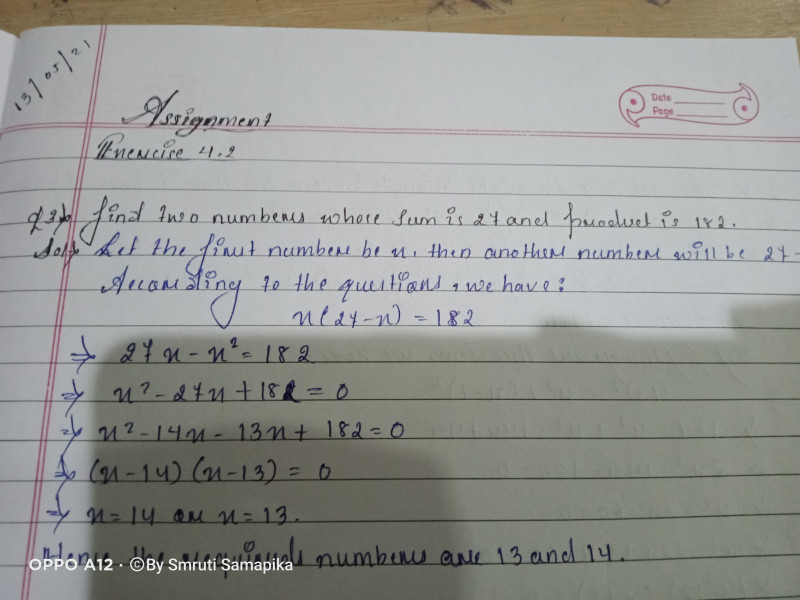 13/05/21
Date
Page
Assignment
Exercise 4.2
Q3) find two numbers whose sum is 27 and product is 182.
Sol) Let the first number be x, then another number will be 27-
According to the questions, we have:
x(27-x) = 182
⇒ 27x - x² = 182
⇒ x² - 27x + 182 = 0
⇒ x² - 14x - 13x + 182 = 0
⇒ (x-14) (x-13) = 0
⇒ x = 14 or x = 13.
Hence the required numbers are 13 and 14.
OPPO A12 · ©By Smruti Samapika